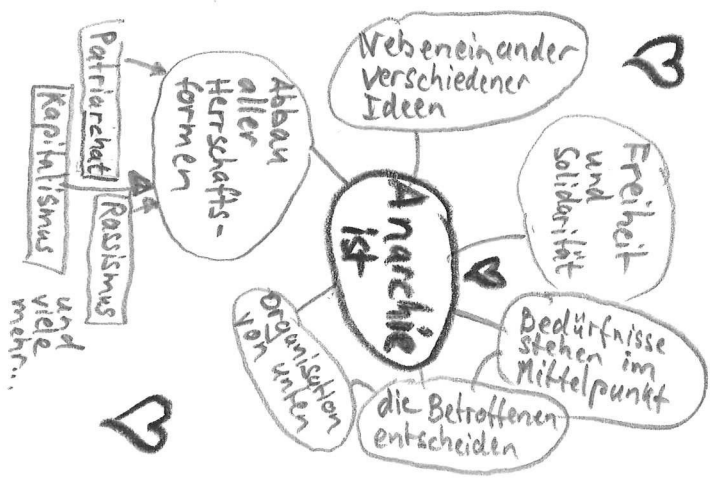 Anarchie
ist
Nebeneinander
verschiedener
Ideen
Freiheit
und
Solidarität
Bedürfnisse
stehen im
Mittelpunkt
die Betroffenen
entscheiden
Organisation
von unten
Abbau
aller
Herrschafts-
formen
Patriarchat
Kapitalismus
Rassismus
und
viele
mehr...